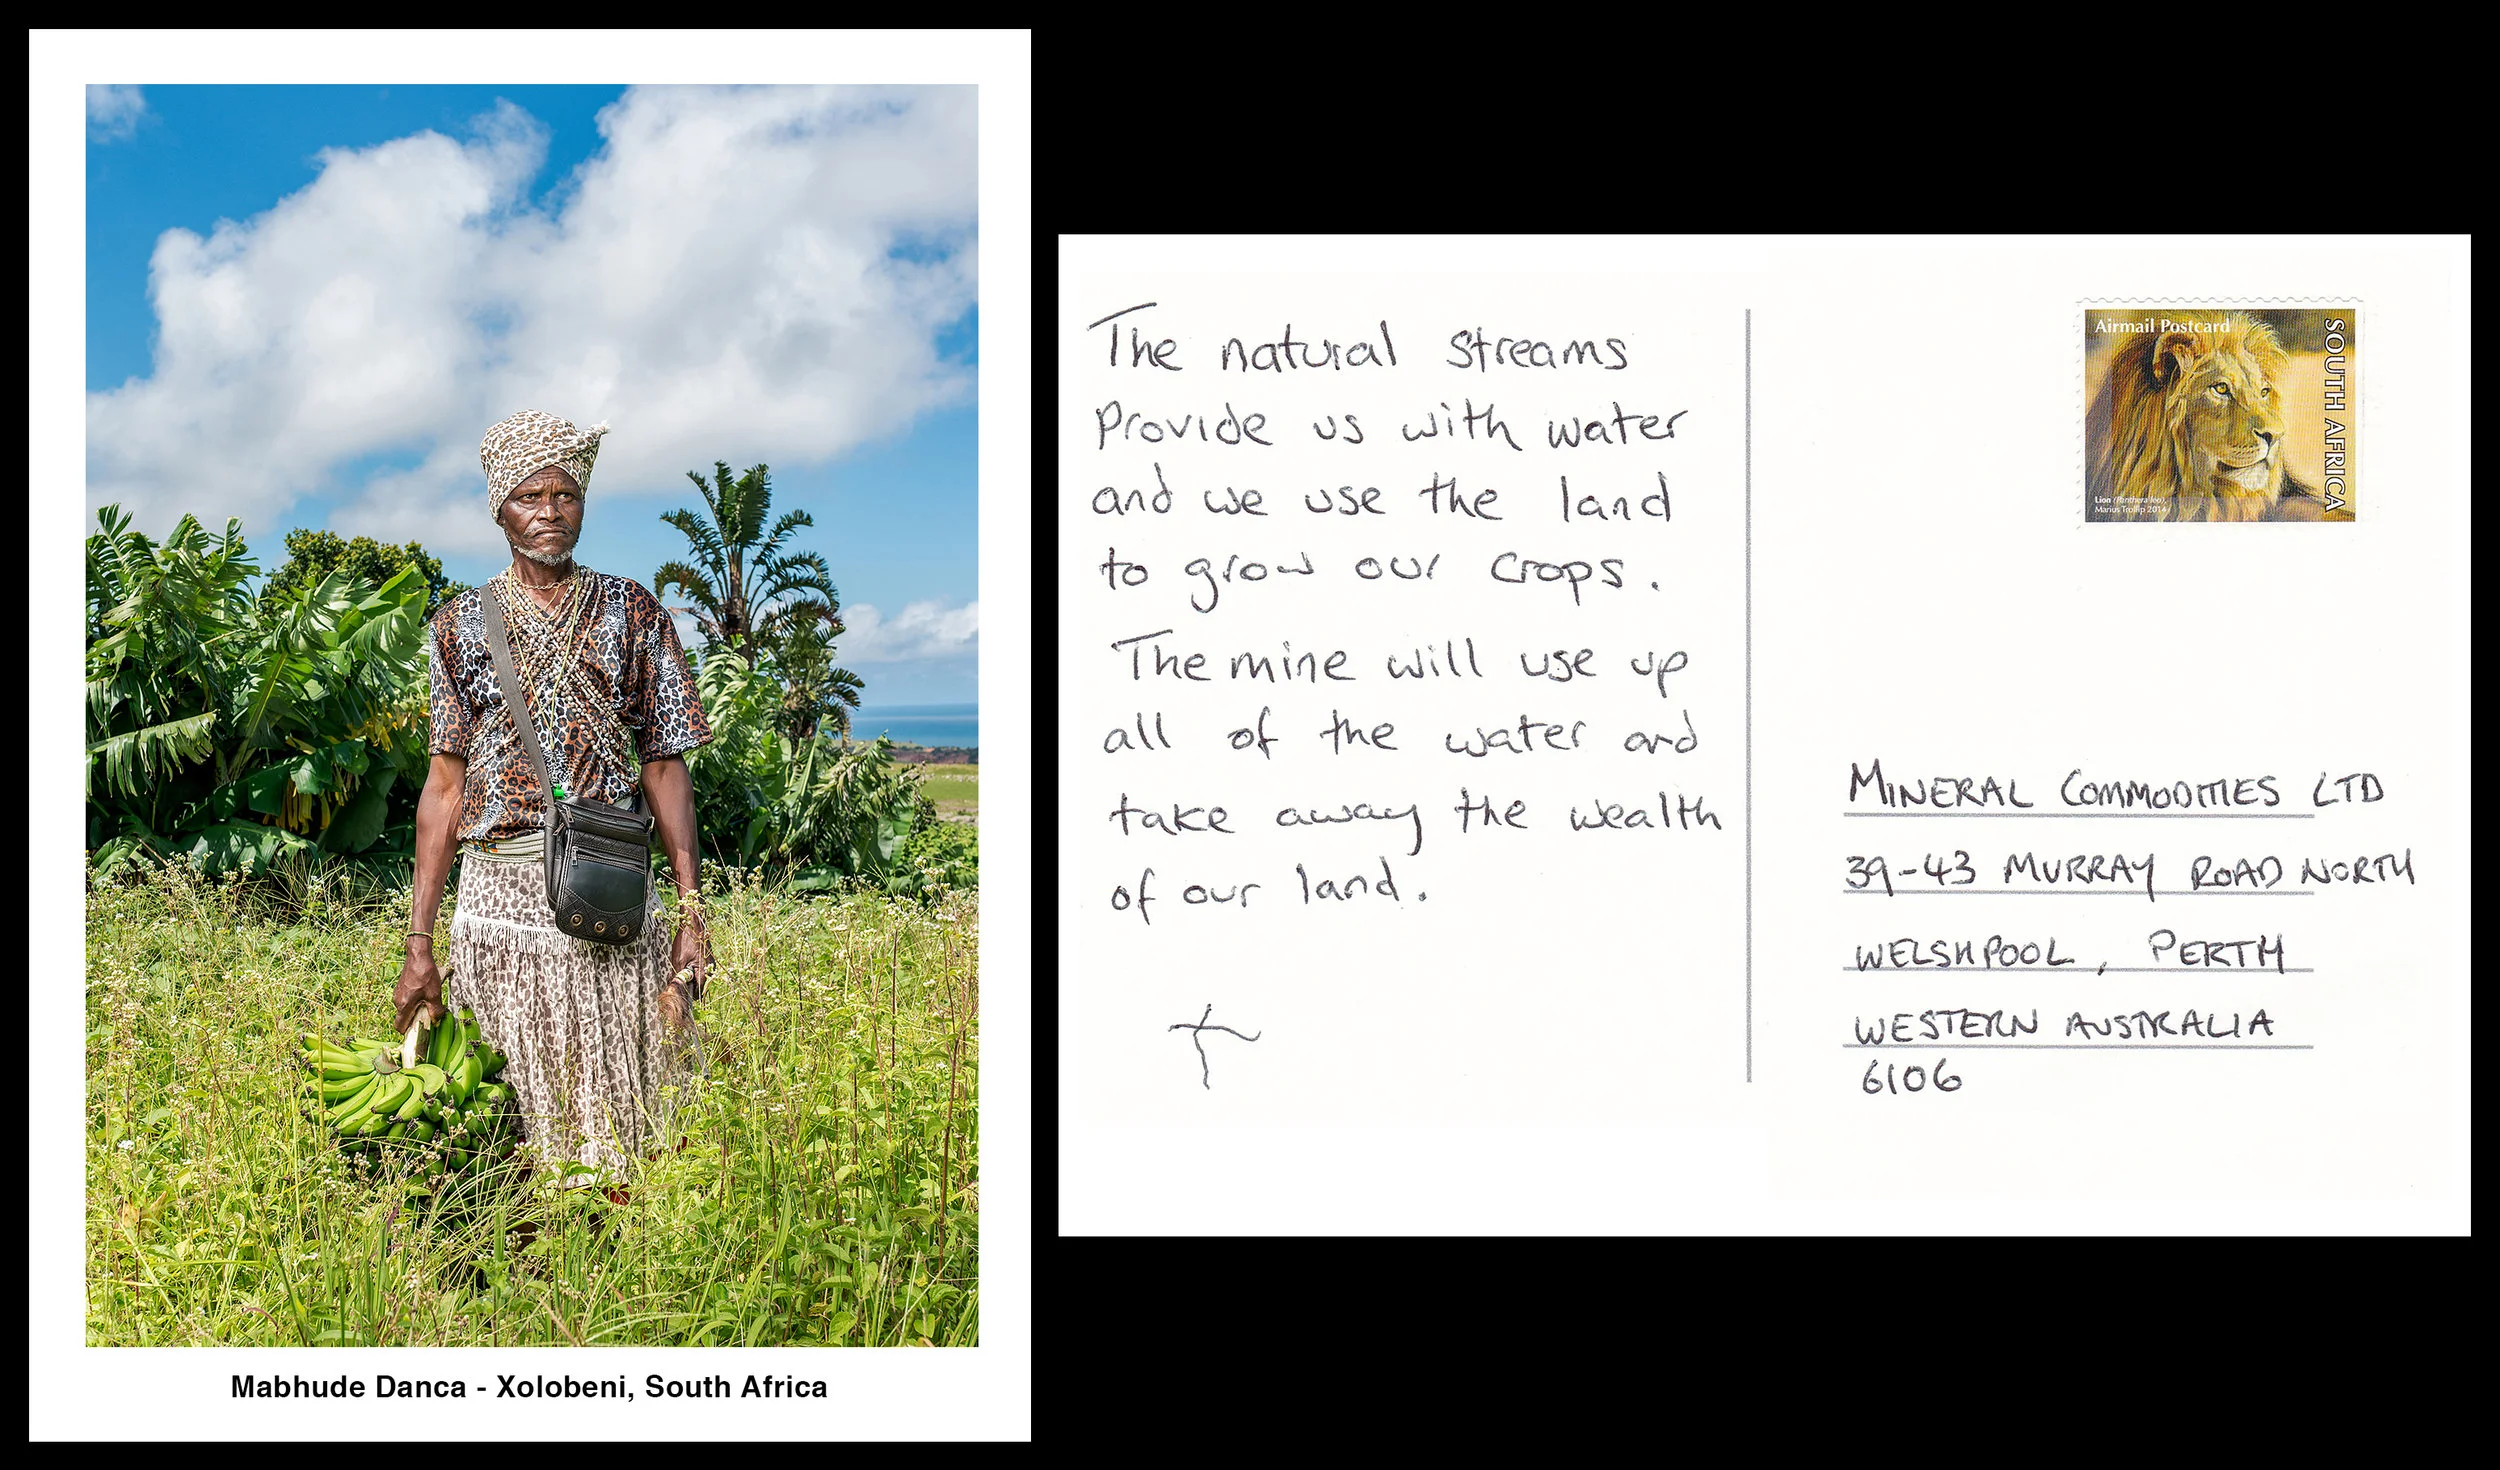 Mabhude Danca - Xolobeni, South Africa
The natural streams
Provide us with water
and we use the land
to grow our crops.
The mine will use up
all of the water and
take away the wealth
of our land.
Airmail Postcard
SOUTH AFRICA
Lion (Panthera leo),
Marius Trollip 2014
MINERAL COMMODITIES LTD
39-43 MURRAY ROAD NORTH
WELSHPOOL, PERTH
WESTERN AUSTRALIA
6106